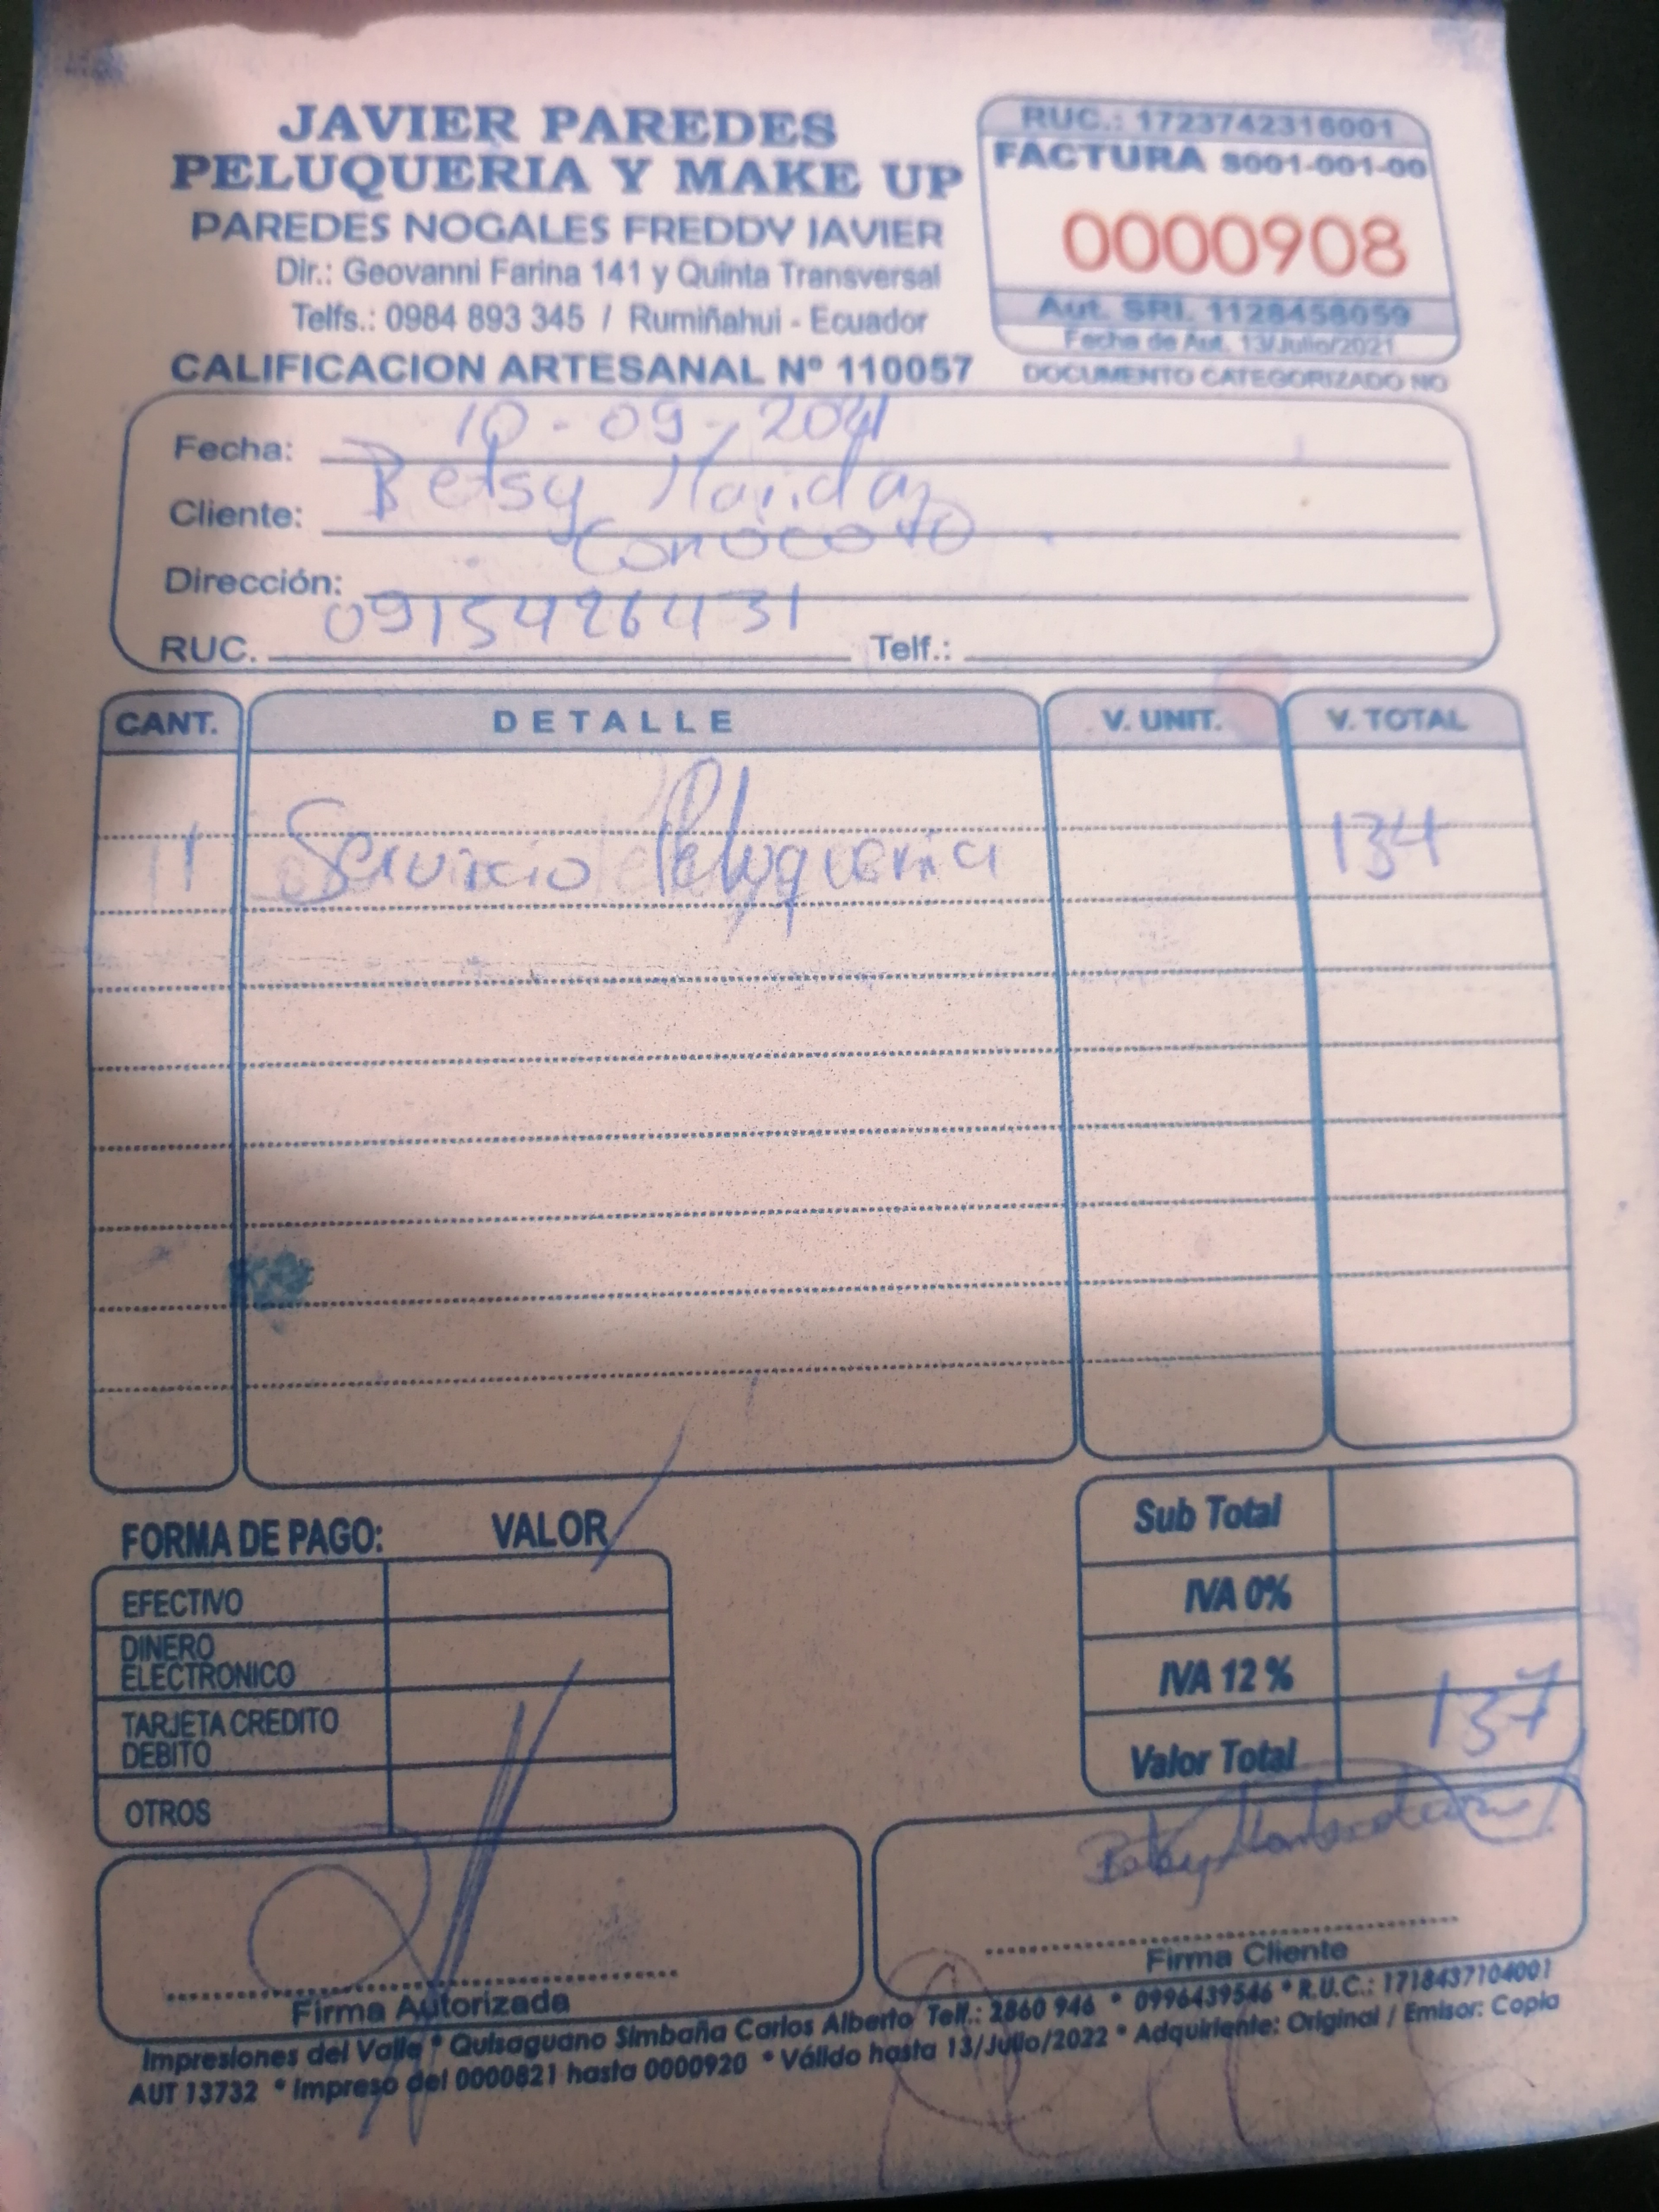 JAVIER PAREDES
PELUQUERIA Y MAKE UP
PAREDES NOGALES FREDDY JAVIER
Dir.: Geovanni Farina 141 y Quinta Transversal
Telfs.: 0984 893 345 / Rumiñahui - Ecuador
CALIFICACION ARTESANAL Nº 110057
RUC.: 1723742316001
FACTURA S001-001-00
0000908
Aut. SRI. 1128458059
Fecha de Aut. 13/Julio/2021
DOCUMENTO CATEGORIZADO NO
Fecha: 10-09-2021
Cliente: Betsy
Dirección: Conocoto
RUC. 0915426431 Telf.:
CANT. DETALLE V. UNIT. V. TOTAL
1 Servicio Peluqueria 134
FORMA DE PAGO: VALOR
EFECTIVO
DINERO ELECTRONICO
TARJETA CREDITO DEBITO
OTROS
Sub Total
IVA 0%
IVA 12 %
Valor Total 137
Firma Autorizada
Betsy
Firma Cliente
Impresiones del Valle * Quisaguano Simbaña Carlos Alberto Telf.: 2860 946 * 0996439546 * R.U.C.: 1718437104001
AUT 13732 * Impreso del 0000821 hasta 0000920 * Válido hasta 13/Julio/2022 * Adquiriente: Original / Emisor: Copia